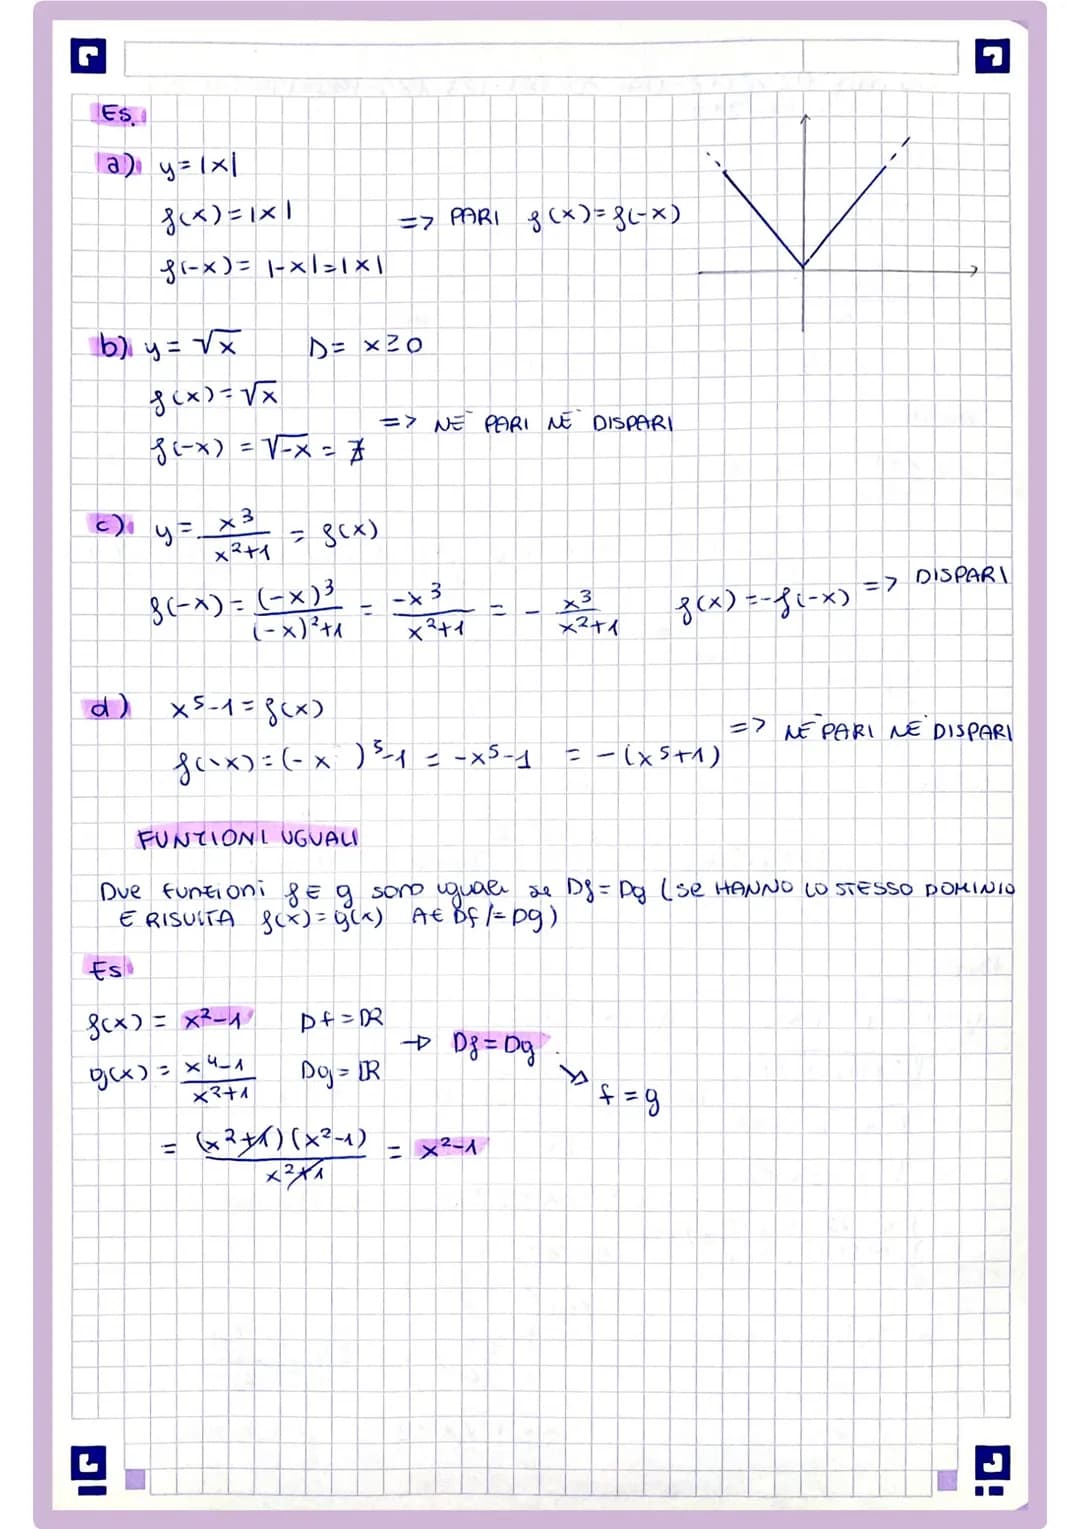 Es.
a) y = |x|
f(x) = |x|
=> PARI f(x) = f(-x)
f(-x) = |-x| = |x|
b) y = √x D = x ≥ 0
f(x) = √x
=> NE PARI NE DISPARI
f(-x) = √-x = ∄
c) y = x³/(x²+1) = f(x)
f(-x) = (-x)³/((-x)²+1) = -x³/(x²+1) = - x³/(x²+1) f(x) = -f(-x) => DISPARI
d) x⁵-1 = f(x)
=> NE PARI NE DISPARI
f(-x) = (-x )⁵-1 = -x⁵-1 = -(x⁵+1)
FUNZIONI UGUALI
Due funzioni f E g sono uguali se Df = Dg (se HANNO LO STESSO DOMINIO
E RISULTA f(x) = g(x) A∈ Df/=Dg)
Es
f(x) = x²-1 Df = ℝ
→ Df = Dg
g(x) = (x⁴-1)/(x²+1) Dg = ℝ
f = g
= (x²+1)(x²-1)/(x²+1) = x²-1